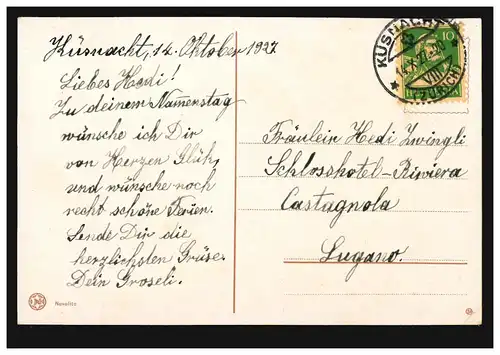 Küsnacht, 14. Oktober 1927.
Liebes Hedi!
Zu deinem Namenstag
wünsche ich Dir
von Herzen Glük,
und wünsche noch
recht schöne Ferien.
Sende Dir die
herzlichsten Grüse
Dein Groseli.
KÜSNACHT
14.X.27
VIII
(ZÜRICH)
10
Fräulein Hedi Zwingli
Schlosshotel-Riwiera
Castagnola
Lugano.
Novelitz